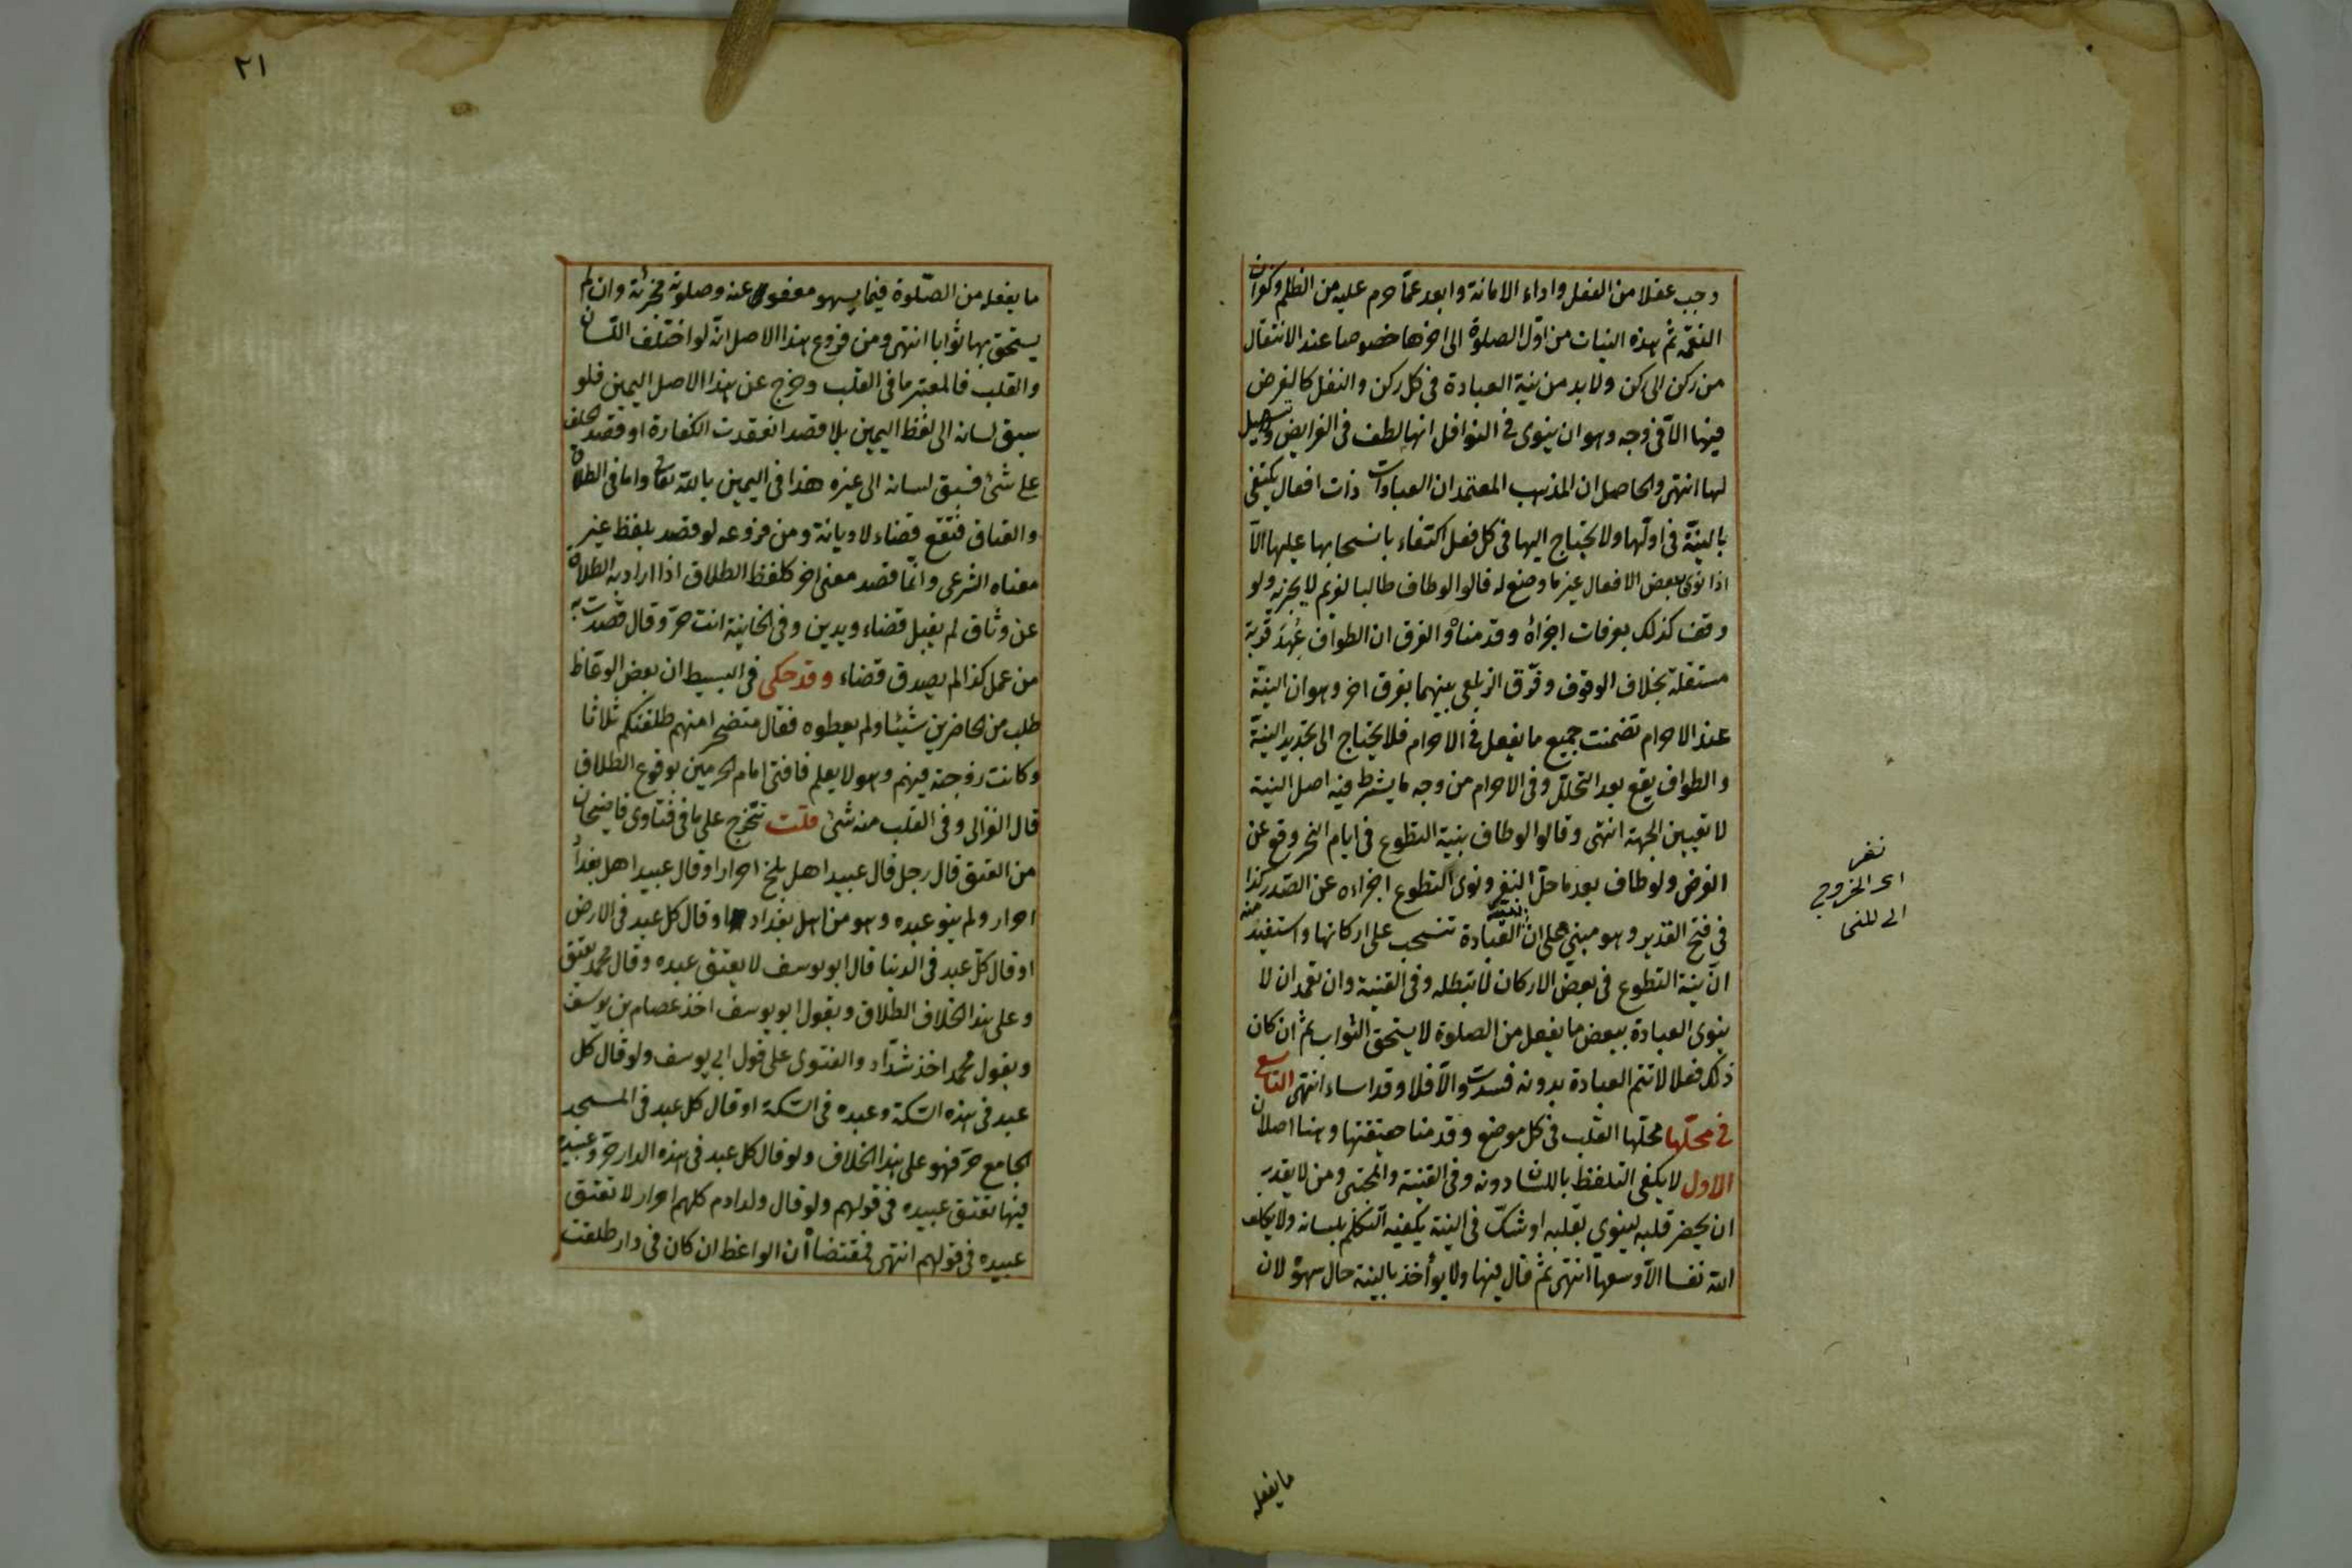 وجب عقلا من الفعل واداء الامانة وابعد عما حرم عليه من الظلم وكفران
النعمة ثم هذه النيات من اول الصلوة الى اخرها خصوصا عند الانتقال
من ركن الى ركن ولا بد من نية العبادة فى كل ركن والنفل كالفرض
فيها الا فى وجه وهو ان ينوى فى النوافل انها لطف فى الفرايض وتسهيل
لها انتهى والحاصل ان المذهب المعتمد ان العبادات ذات افعال يكتفى
بالنية فى اولها ولا يحتاج اليها فى كل فعل اكتفاء بانسحابها عليها الا
اذا نوى ببعض الافعال غير ما وضع له قالوا لو طاف طالبا لغريم لا يجزيه ولو
وقف كذلك بعرفات اجزاه وقدمناه والفرق ان الطواف عهد قربة
مستقلة بخلاف الوقوف وفرق الزيلعى بينهما بفرق اخر وهو ان النية
عند الاحرام تضمنت جميع ما يفعل فى الاحرام فلا يحتاج الى تجديد النية
والطواف يقع بعد التحلل وفى الاحرام من وجه ما يشترط فيه اصل النية
لا تعيين الجهة انتهى وقالوا لو طاف بنية التطوع فى ايام النحر وقع عن
الفرض ولو طاف بعد ما حل النفر ونوى التطوع اجزاءه عن الصدر كذا
فى فتح القدير وهو مبني على ان نية العبادة تنسحب على اركانها واستفيد منه
ان نية التطوع فى بعض الاركان لا تبطله وفى القنية وان تعمد ان لا
ينوى العبادة ببعض ما يفعل من الصلوة لا يستحق الثواب ثم ان كان
ذلك فعلا لا تتم العبادة بدونه فسدت والا فلا وقد اساء انتهى التاسع
فى محلها محلها القلب فى كل موضع وقدمنا حقيقتها وهنا اصلان
الاول لا يكفى التلفظ باللسان دونه وفى القنية والمجتبى ومن لا يقدر
ان يحضر قلبه لينوى بقلبه او شك فى النية يكفيه التكلم بلسانه ولا يكلف
الله نفسا الا وسعها انتهى ثم قال فيها ولا يؤاخذ بالنية حال سهوه لان
نفر
الخروج
الى
ما يفعله
٢١
ما يفعله من الصلوة فيما يسهو معفو عنه وصلوته مجزئة وان لم
يستحق بها ثوابا انتهى ومن فروع هذا الاصل انه لو اختلف اللسان
والقلب فالمعتبر ما فى القلب وخرج عن هذا الاصل اليمين فلو
سبق لسانه الى لفظ اليمين بلا قصد انعقدت الكفارة او قصد الحلف
على شئ فسبق لسانه الى غيره هذا فى اليمين بالله تعالى واما فى الطلاق
والعتاق فتقع قضاء لا ديانة ومن فروعه لو قصد بلفظ غير
معناه الشرعى وانما قصد معنى اخر كلفظ الطلاق اذا اراد به الطلاق
عن وثاق لم يقبل قضاء ويدين وفى الخانية انت حر وقال قصدت به
من عمل كذا لم يصدق قضاء وقد حكى فى البسيط ان بعض الوعاظ
طلب من الحاضرين شيئا ولم يعطوه فقال متضجرا منهم طلقتكم ثلاثا
وكانت زوجته فيهم وهو لا يعلم فافتى امام الحرمين بوقوع الطلاق
قال الغزالى وفى القلب منه شئ قلت تتخرج على ما فى فتاوى قاضيخان
من العتق قال رجل قال عبيد اهل بلخ احرار او قال عبيد اهل بغداد
احرار ولم ينو عبده وهو من اهل بغداد او قال كل عبد فى الارض
او قال كل عبد فى الدنيا قال ابو يوسف لا يعتق عبده وقال محمد يعتق
وعلى هذا الخلاف الطلاق وبقول ابو يوسف اخذ عصام بن يوسف
وبقول محمد اخذ شداد والفتوى على قول ابى يوسف ولو قال كل
عبد فى هذه السكة وعبده فى السكة او قال كل عبد فى المسجد
الجامع حر فهو على هذا الخلاف ولو قال كل عبد فى هذه الدار حر وعبيده
فيها تعتق عبيده فى قولهم ولو قال ولد ادم كلهم احرار لا تعتق
عبيده فى قولهم انتهى فمقتضاه ان الواعظ ان كان فى دار طلقت